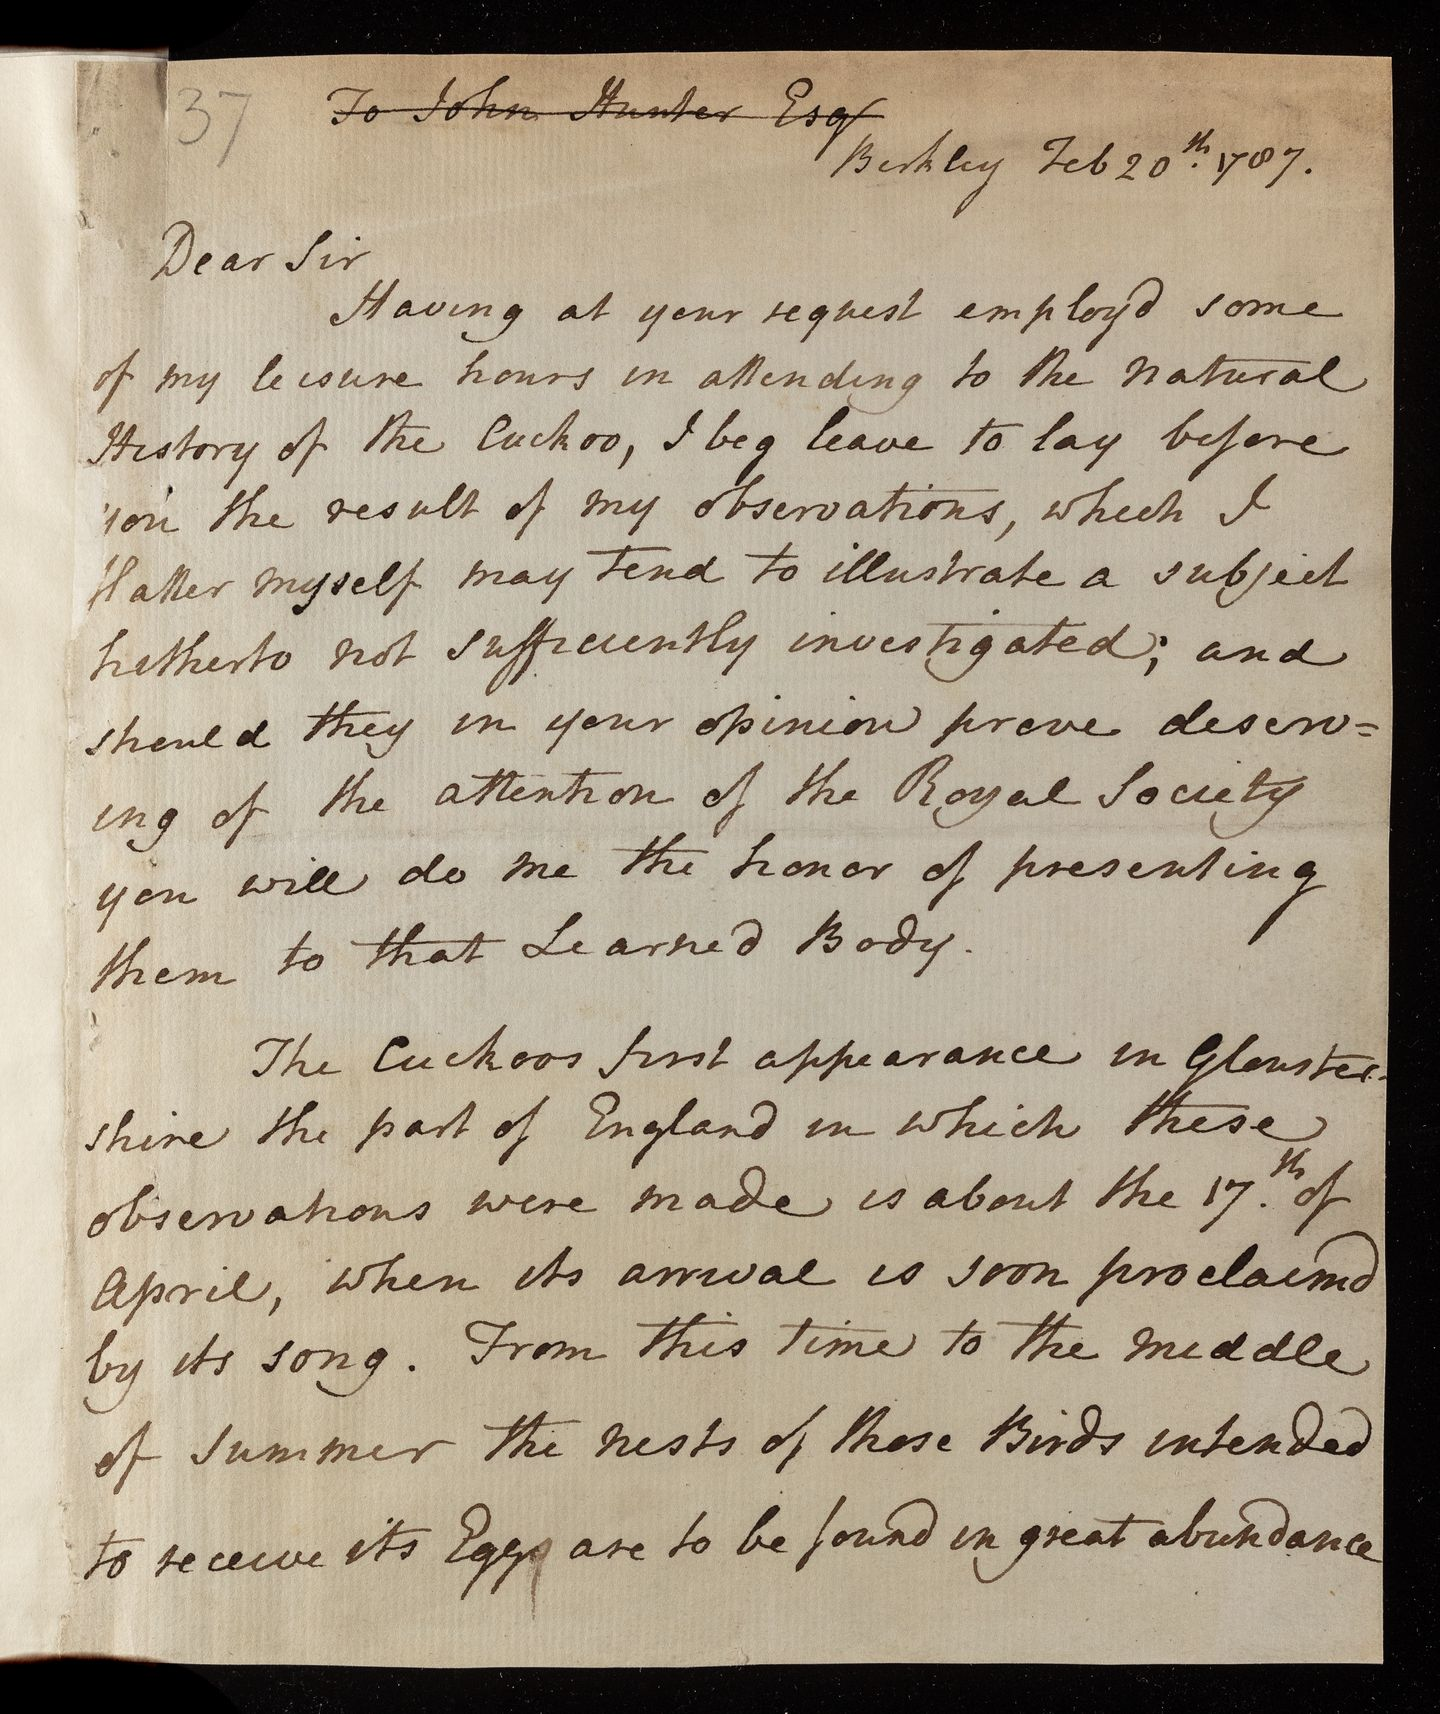 37
To John Hunter Esqr
Berkley Feb 20th. 1787.
Dear Sir
Having at your request employ'd some
of my leisure hours in attending to the Natural
History of the Cuckoo, I beg leave to lay before
you the result of my observations, which I
flatter myself may tend to illustrate a subject
hitherto not sufficiently investigated; and
should they in your opinion prove deserv=
ing of the attention of the Royal Society
you will do me the honor of presenting
them to that Learned Body.
The Cuckoos first appearance in Glouster-
shire the part of England in which these
observations were made is about the 17.th of
April, when its arrival is soon proclaimd
by its song. From this time to the middle
of Summer the nests of those Birds intended
to receive its Eggs are to be found in great abundance